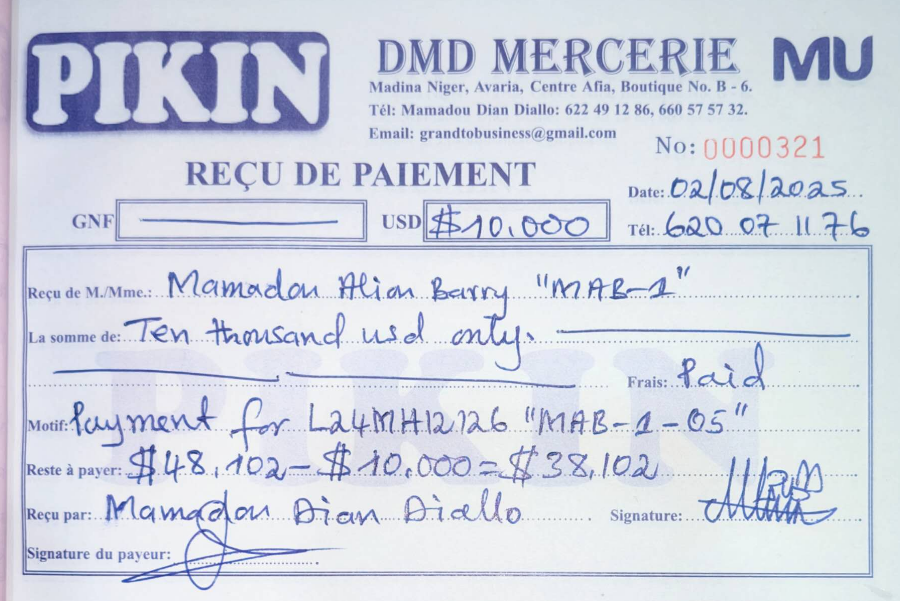 PIKIN
DMD MERCERIE
MU
Madina Niger, Avaria, Centre Afia, Boutique No. B - 6.
Tél: Mamadou Dian Diallo: 622 49 12 86, 660 57 57 32.
Email: grandtobusiness@gmail.com
No: 0000321
REÇU DE PAIEMENT
Date: 02/08/2025
GNF USD $10.000
Tél: 620 07 11 76
Reçu de M./Mme.: Mamadou Aliou Barry "MAB-1"
La somme de: Ten thousand usd only.
Frais: Paid
Motif: Payment for L24MH12126 "MAB-1-05"
Reste à payer: $48,102-$10.000=$38,102
Reçu par: Mamadou Dian Diallo Signature:
Signature du payeur:
PIKIN